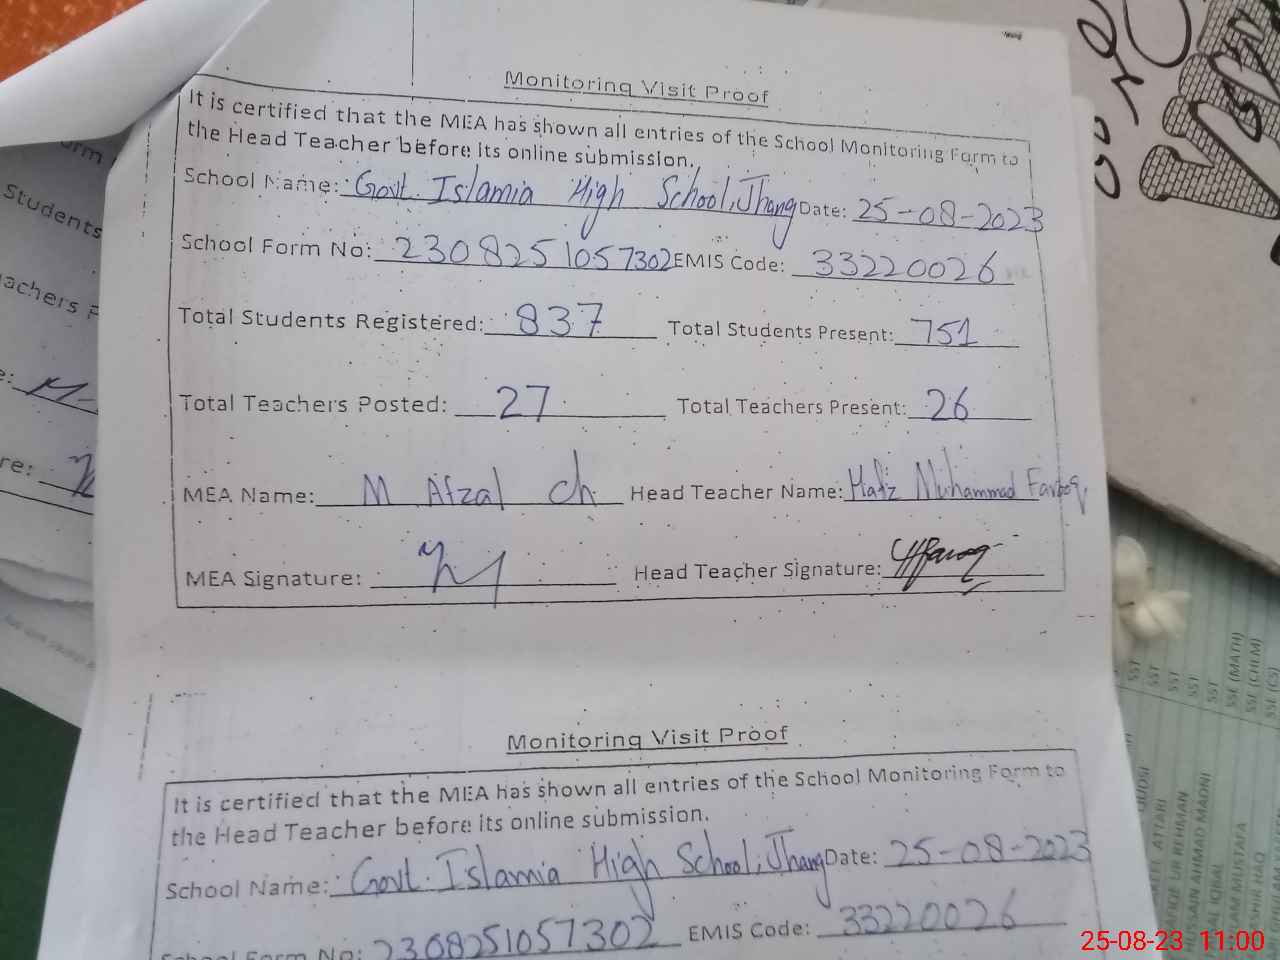 Monitoring Visit Proof
It is certified that the MEA has shown all entries of the School Monitoring Form to
the Head Teacher before its online submission.
School Name: Govt. Islamia High School, Jhang Date: 25-08-2023
School Form No: 2308251057302 EMIS Code: 33220026
Total Students Registered: 837 Total Students Present: 751
Total Teachers Posted: 27 Total Teachers Present: 26
MEA Name: M Afzal ch Head Teacher Name: Hafiz Muhammad Farooq
MEA Signature: Head Teacher Signature:
Monitoring Visit Proof
It is certified that the MEA has shown all entries of the School Monitoring Form to
the Head Teacher before its online submission.
School Name: Govt. Islamia High School, Jhang Date: 25-08-2023
School Form No: 2308251057302 EMIS Code: 33220026
Students
SST
SST
SST
SST
SST
SSE (MATH)
SSE (CHEM)
SSE (CS)
25-08-23 11:00